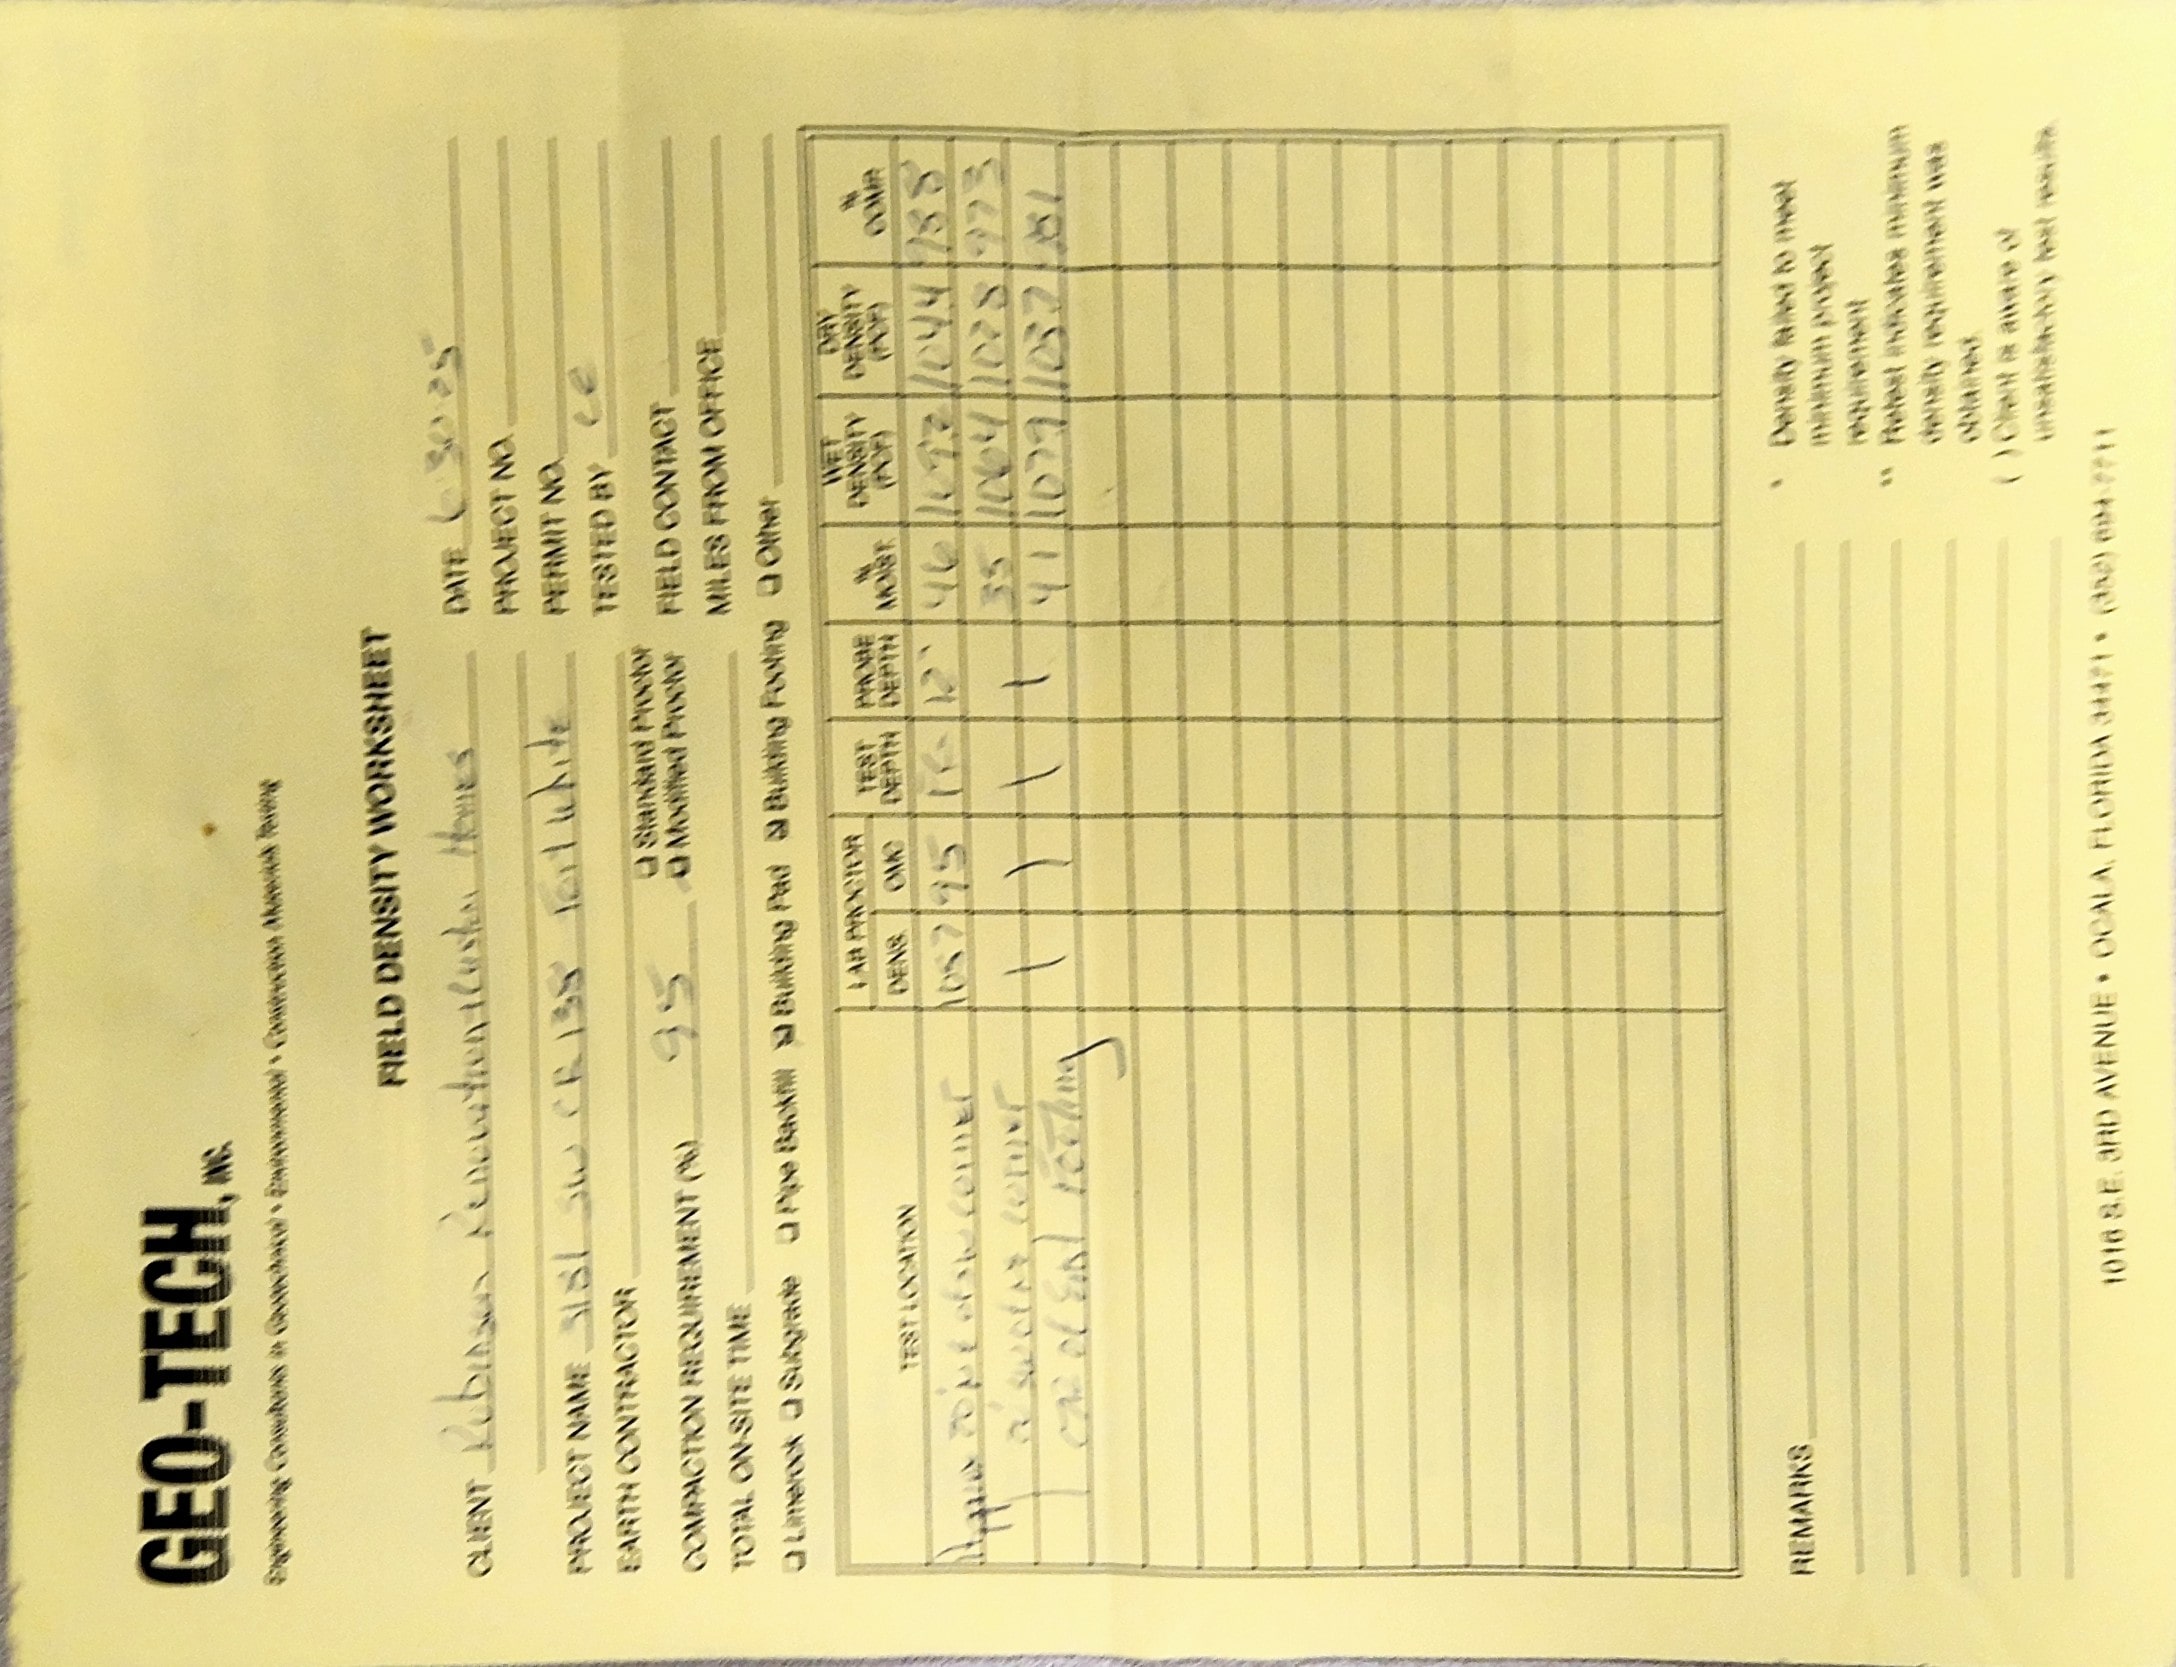 GEO-TECH, INC.
Engineering Consultants in Geotechnical • Environmental • Construction Materials Testing
FIELD DENSITY WORKSHEET
CLIENT Robinson Renovation + Custom Homes
DATE 6 30 25
PROJECT NO.
PROJECT NAME 3151 SW CR 138 Fort White
PERMIT NO.
EARTH CONTRACTOR
TESTED BY
COMPACTION REQUIREMENT (%) 95
❑ Standard Proctor
❑ Modified Proctor
FIELD CONTACT
TOTAL ON-SITE TIME
MILES FROM OFFICE
❑ Limerock ❑ Subgrade ❑ Pipe Backfill ☒ Building Pad ☒ Building Footing ❑ Other
TEST LOCATION
LAB PROCTOR
DENS. OMC
TEST DEPTH
PROBE DEPTH
% MOIST.
WET DENSITY (PCF)
DRY DENSITY (PCF)
% COMP.
of NW corner 1057 95 12" 46 1092 1044 988
corner 35 1064 1028 973
of footing 41 1079 1037 981
REMARKS
* Density failed to meet
minimum project
requirement
** Retest indicates minimum
density requirement was
obtained.
( ) Client is aware of
unsatisfactory test results
1016 S.E. 3RD AVENUE • OCALA, FLORIDA 34471 • (352) 694-7711